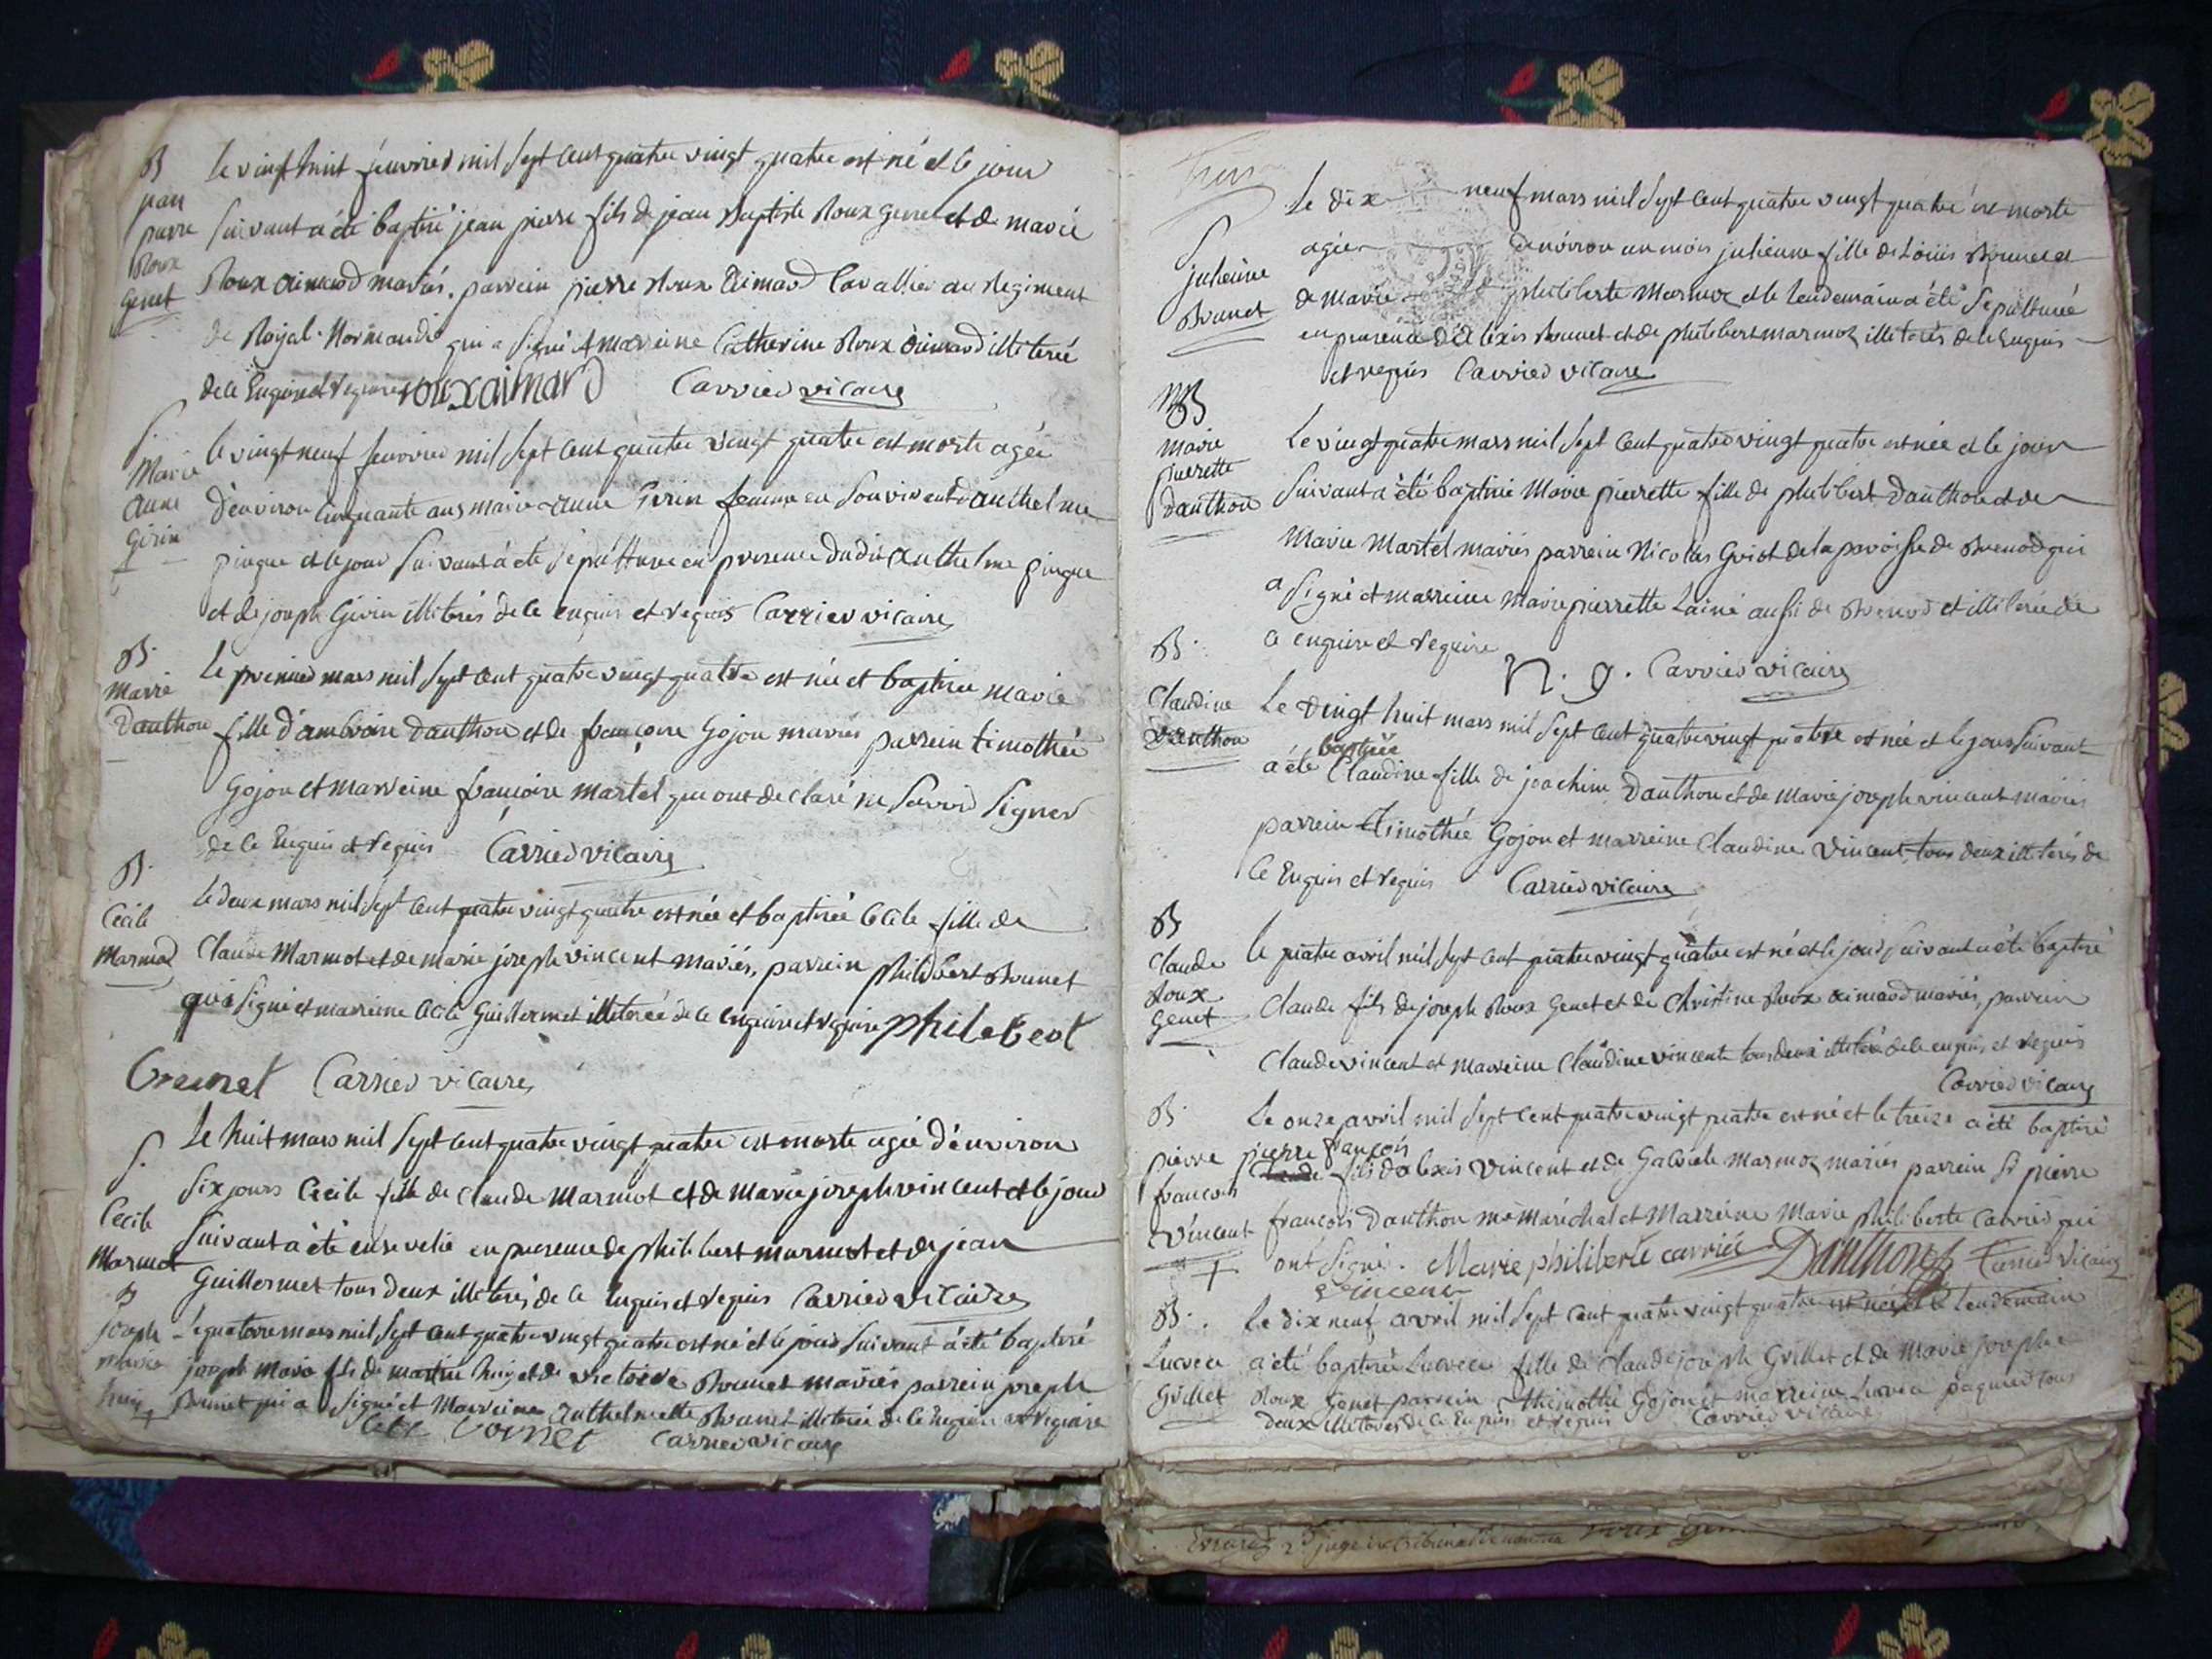 B
jean
pierre
Roux
Genet
Le vingt huit fevrier mil sept cent quatre vingt quatre est né et le jour
suivant a été baptisé jean pierre fils de jean Baptiste Roux genet et de marie
Roux aimard mariés. parrein pierre Roux Aimard Cavallier au Regiment
de Royal-Normandie qui a signé & marreine Catherine Roux Aimard illiterée
de ce Enquise et requise roux aimard Carrier vicaire
S.
Marie
Anne
Girin
Le vingt neuf fevrier mil sept cent quatre vingt quatre est morte agée
d'environ cinquante ans marie anne Girin femme en son vivent d'anthelme
pingue et le jour suivant a été sépulturée en presence dudit anthelme pingue
et de joseph Girin illiterés de ce enquis et requis Carrier vicaire
B.
Marie
Danthon
Le premier mars mil sept cent quatre vingt quatre est née et baptisée marie
fille d'ambroise danthon et de françoise Gojon mariés parrein timothée
Gojon et marreine françoise martel qui ont declaré ne savoir signer
de ce Enquis et requis Carrier vicaire
B.
Cécile
Marmod
Le deux mars mil sept cent quatre vingt quatre est née et baptisée Cécile fille de
Claude Marmot et de marie joseph vincent mariés, parrein philibert Brunet
qui a signé et marreine Cécile Guillermet illiterée de ce enquise et requise philebeot
Breunet Carrier vicaire
S.
Cecile
Marmot
Le huit mars mil sept cent quatre vingt quatre est morte agée d'environ
six jours Cecile fille de Claude Marmot et de Marie joseph vincent et le jour
suivant a été ensevelie en presence de philibert marmot et de jean
Guillermet tous deux illiterés de ce enquis et requis Carrier vicaire
B
joseph
marie
huij
Le quatorze mars mil sept cent quatre vingt quatre est né et le jour suivant a été baptisé
joseph Marie fils de martin huij et de victoire Brunet mariés parrein joseph
Brunet qui a signé et Marreine Anthelmette Brunet illiterée de ce Enquise et requise
Carrier vicaire
S
julienne
Brunet
Le dix neuf mars mil sept cent quatre vingt quatre est morte
agée d'environ un mois julienne fille de Loüis Brunet et
de Marie philiberte Marmoz et le lendemain a été sepulturée
en presence d'élexis Brunet et de philibert marmoz illiterés de ce Enquis
et requis Carrier vicaire
B
Marie
pierrette
danthon
Le vingt quatre mars mil sept cent quatre vingt quatre est née et le jour
suivant a été baptisée Marie pierrette fille de philibert Danthon et de
Marie Martel mariés parrein Nicolas Guiot de la paroisse de Brenod qui
a signé et marreine Marie pierrette Lainé aussi de Brenod et illiterée de
ce enquise et requise
n. g. Carrier vicaire
B.
Claudine
Danthon
Le vingt huit mars mil sept cent quatre vingt quatre est née et le jour suivant
a été baptisée Claudine fille de joachim Danthon et de Marie joseph vincent mariés
parrein Timothée Gojon et marreine Claudine Vincent tous deux illiterés de
ce Enquis et requis Carrier vicaire
B
Claude
Roux
Genet
Le quatre avril mil sept cent quatre vingt quatre est né et le jour suivant a été baptisé
Claude fils de joseph Roux Genet et de Christine Roux aimard mariés, parrein
Claude vincent et marreine Claudine vincent tous deux illiterés de ce enquis et requis
Carrier vicaire
B.
pierre
françois
vincent
Le onze avril mil sept cent quatre vingt quatre est né et le treize a été baptisé
pierre françois
fils d'alexis Vincent et de Gabriele Marmoz mariés parrein Sr pierre
françois Danthon me maréchal et Marreine Marie philiberte Carrier qui
ont signé. Marie philiberte carrier Danthon Carrier vicaire
Vincent
B.
Lucrece
Grillet
Le dix neuf avril mil sept cent quatre vingt quatre est née et le lendemain
a été baptisée Lucrece fille de Claude joseph Grillet et de Marie josephe
Roux Genet parrein Thimothé Gojon et marreine Lucrece paquier tous
deux illiterés de ce Enquis et requis Carrier vicaire